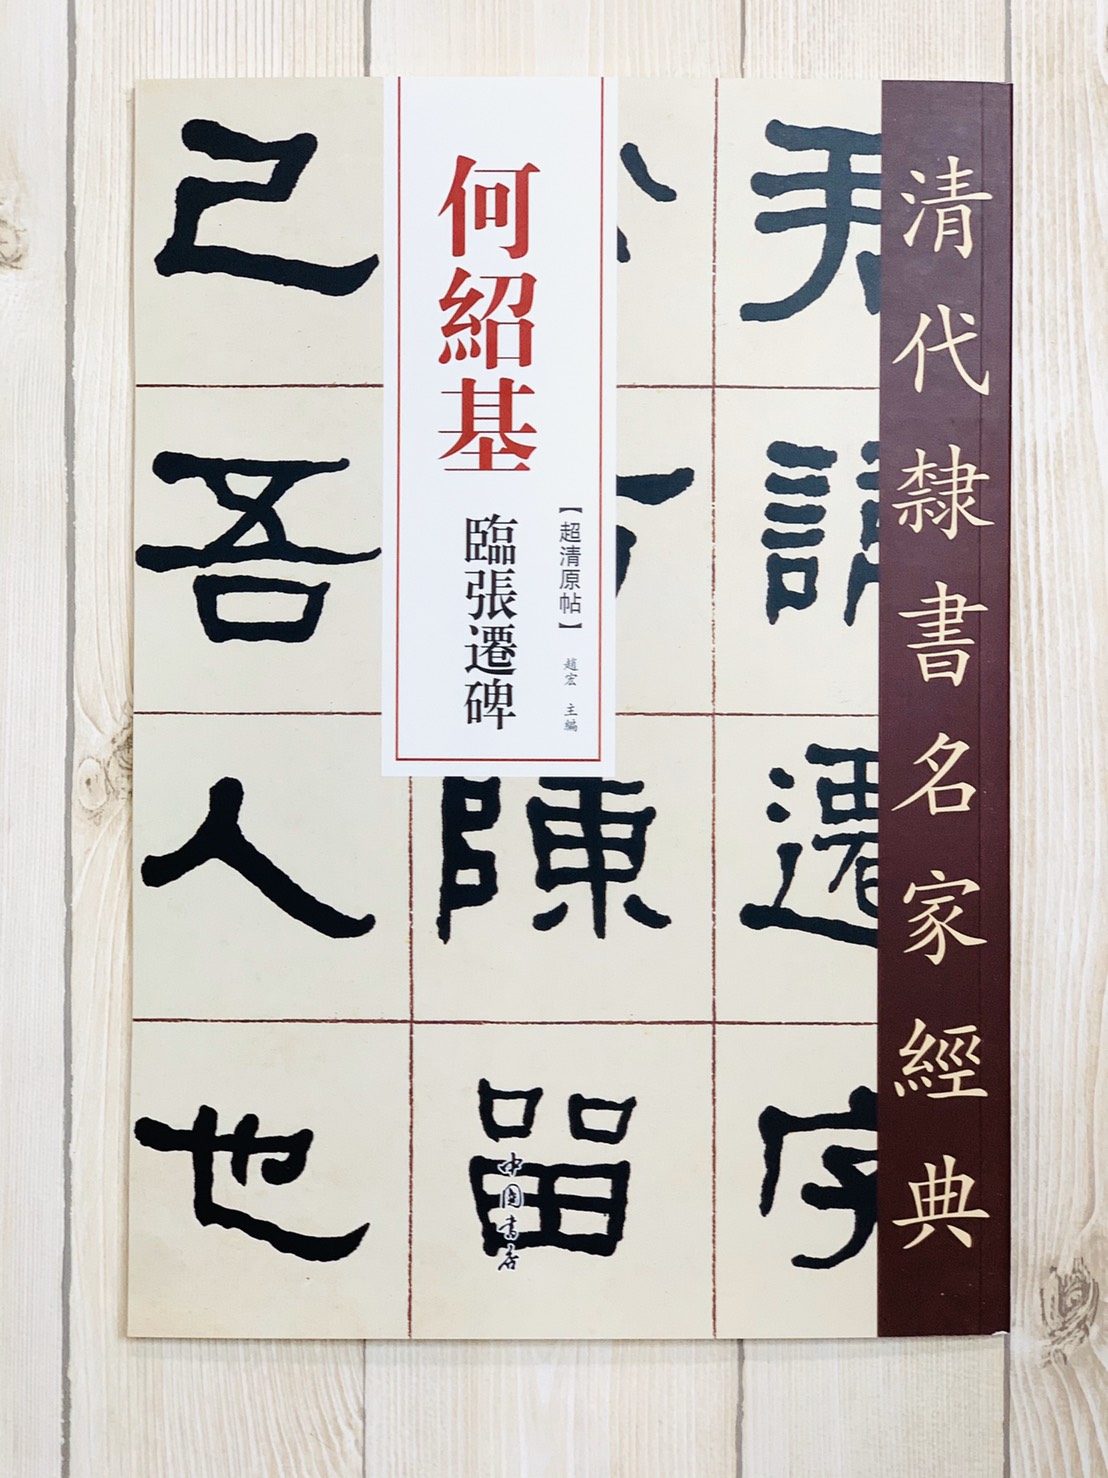 清代隸書名家經典
【超清原帖】 趙宏 主編
何紹基
臨張遷碑
君諱遷字
陳留
己吾人也
中國書店